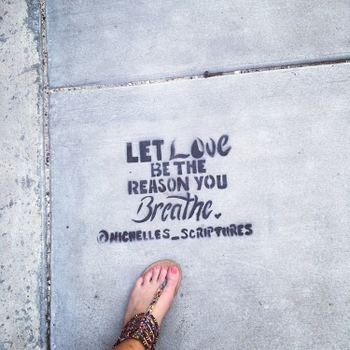 LET Love
BE THE
REASON YOU
Breathe.
@MICHELLES_SCRIPTURES